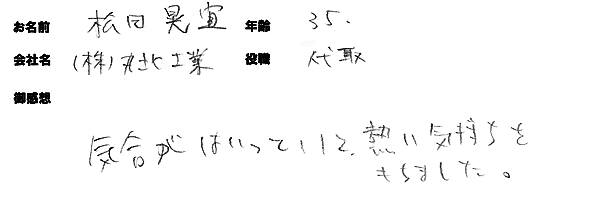 お名前 松田 晃宜 年齢 35.
会社名 (株)丸北工業 役職 代取
御感想
気合がはいっていて、熱い気持ちを
もちました。